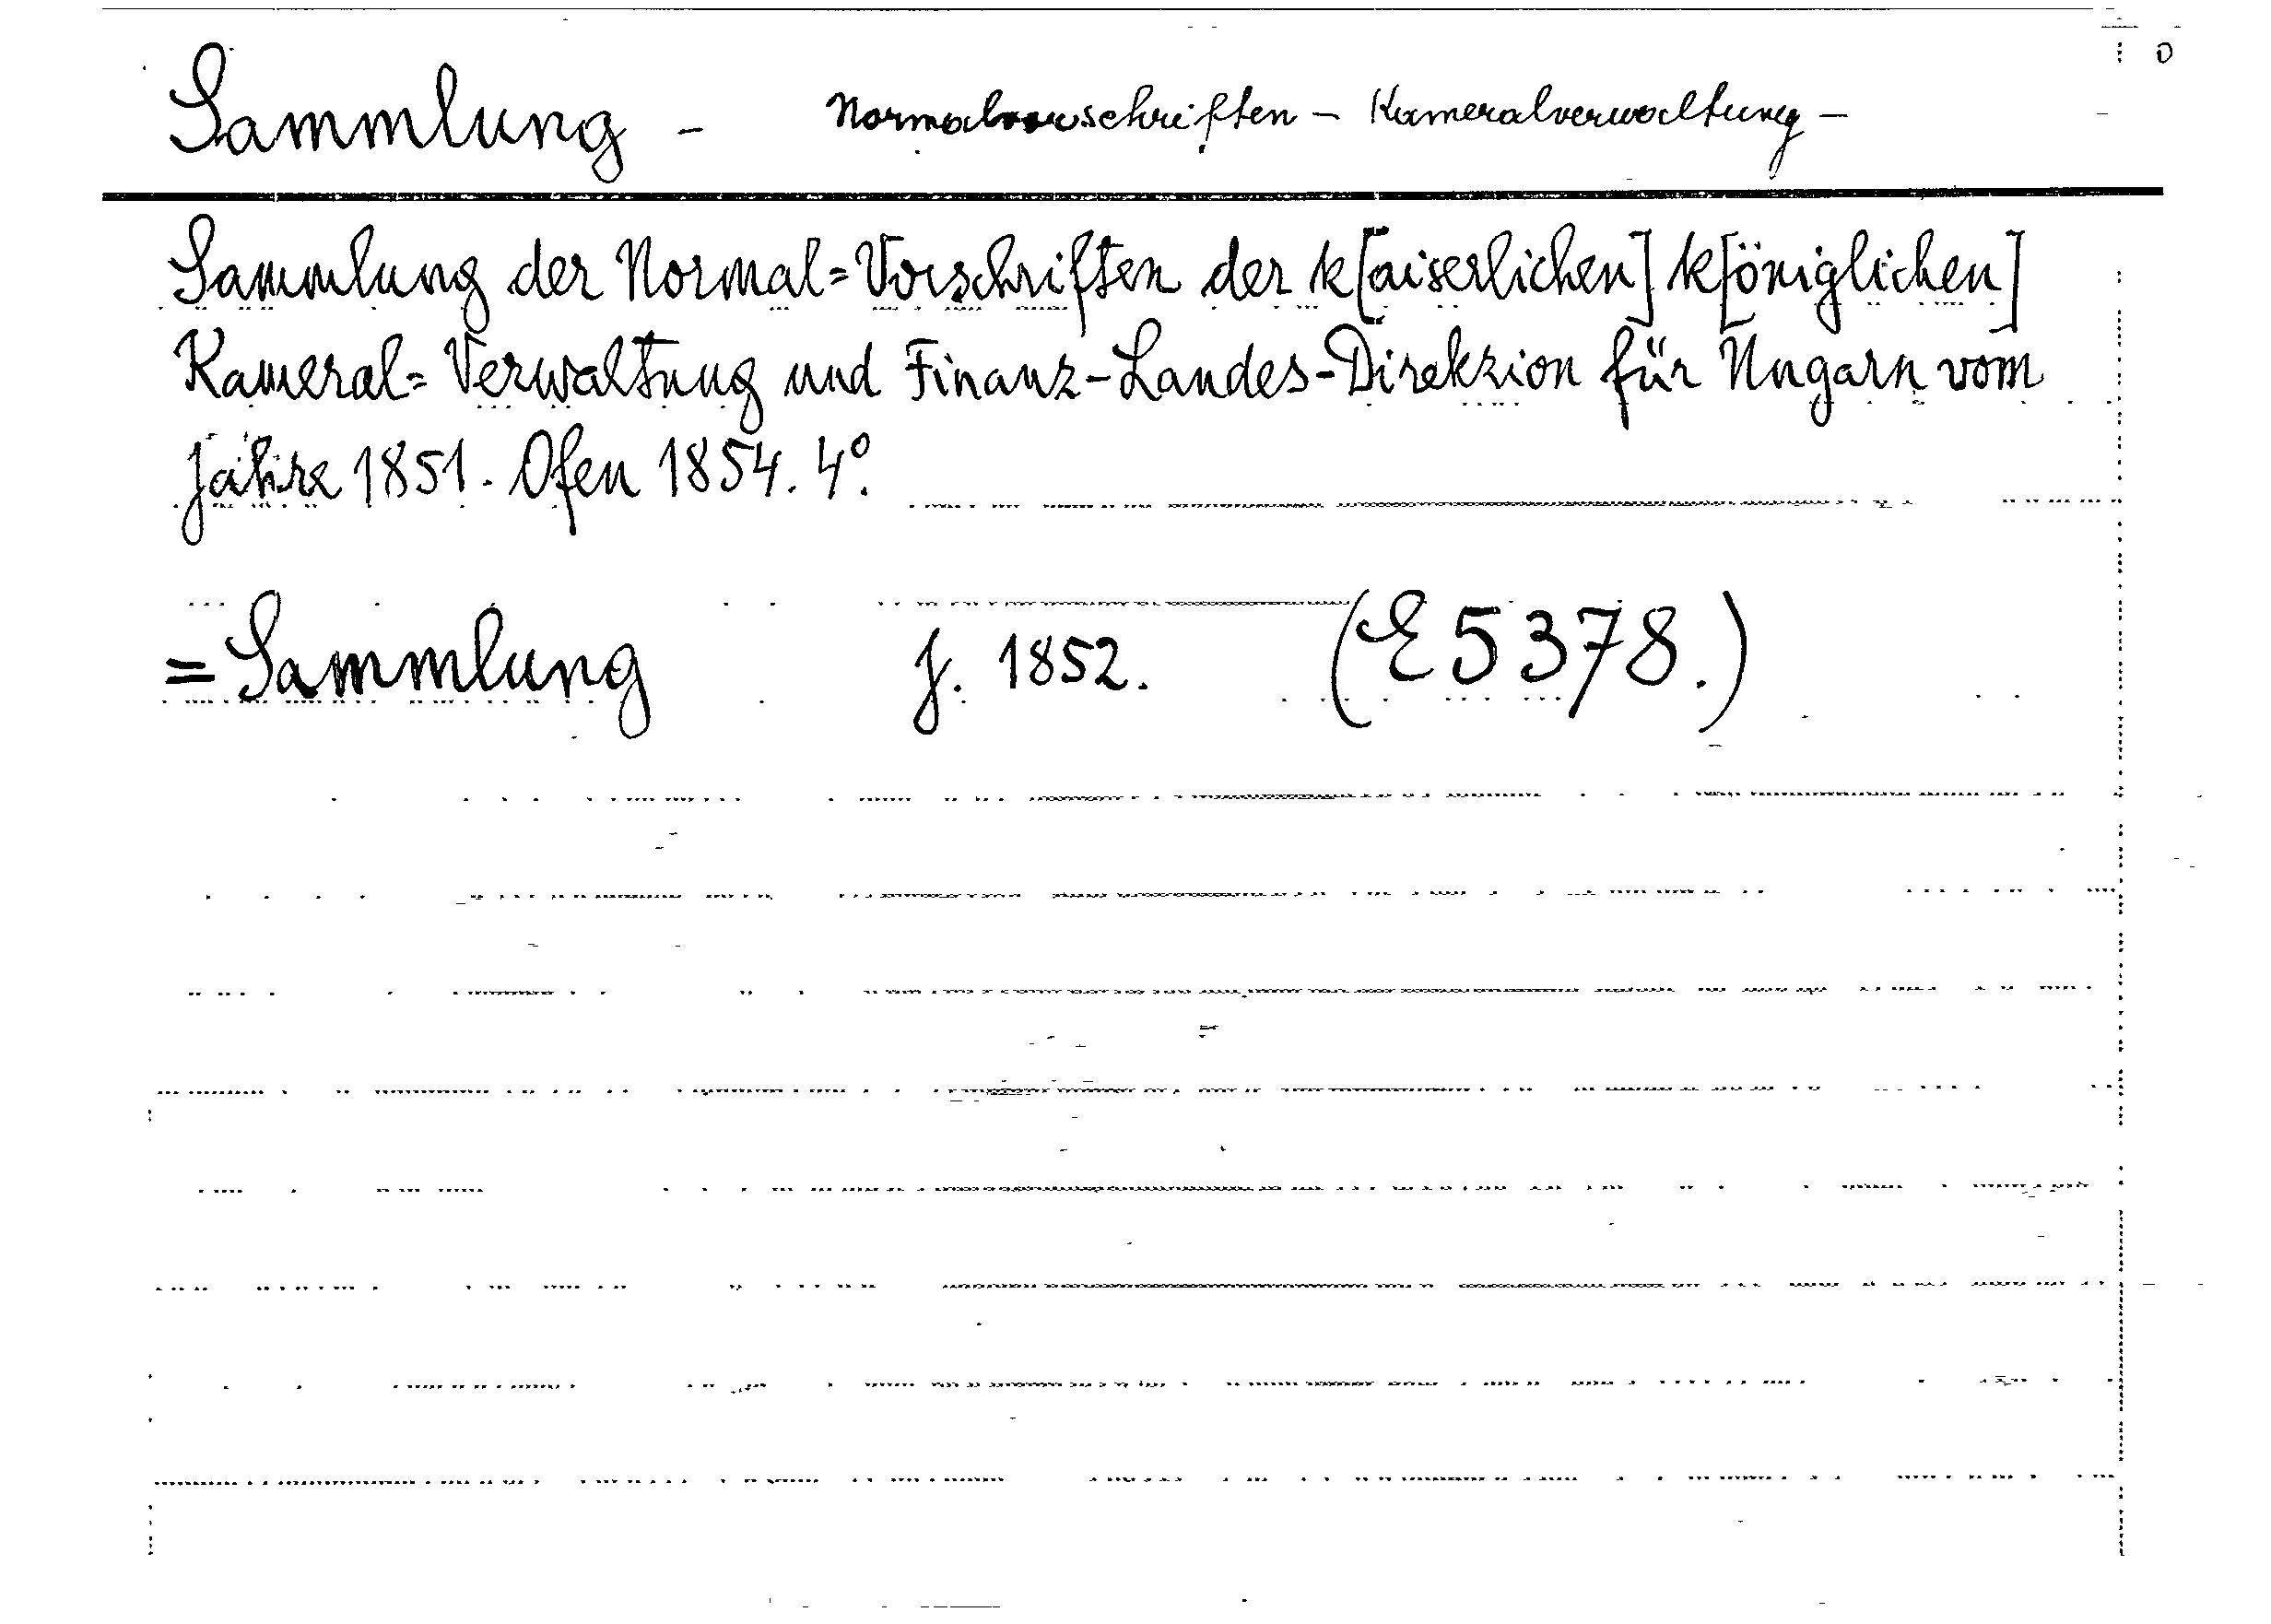 Sammlung - Normalvorschriften - Kameralverwaltung -
Sammlung der Normal=Vorschriften der k[aiserlichen] k[öniglichen]
Kameral=Verwaltung und Finanz-Landes-Direkzion für Ungarn vom
Jahre 1851. Ofen 1854. 4º.
=Sammlung J. 1852. (E 5378.)